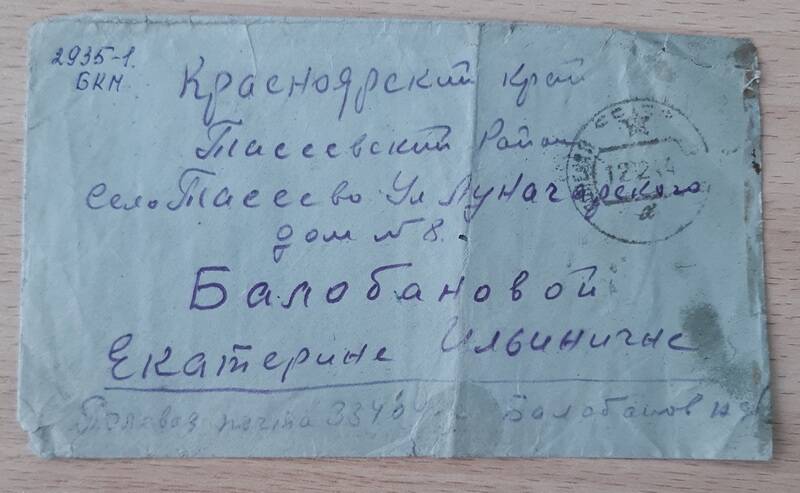 2935-1.
БКМ
Красноярский край
Тасеевский Район
село Тасеево Ул Луначарского
дом № 8.
Балобановой
Екатерине Ильиничне
Полевая почта Балобанов
12 2 44
а